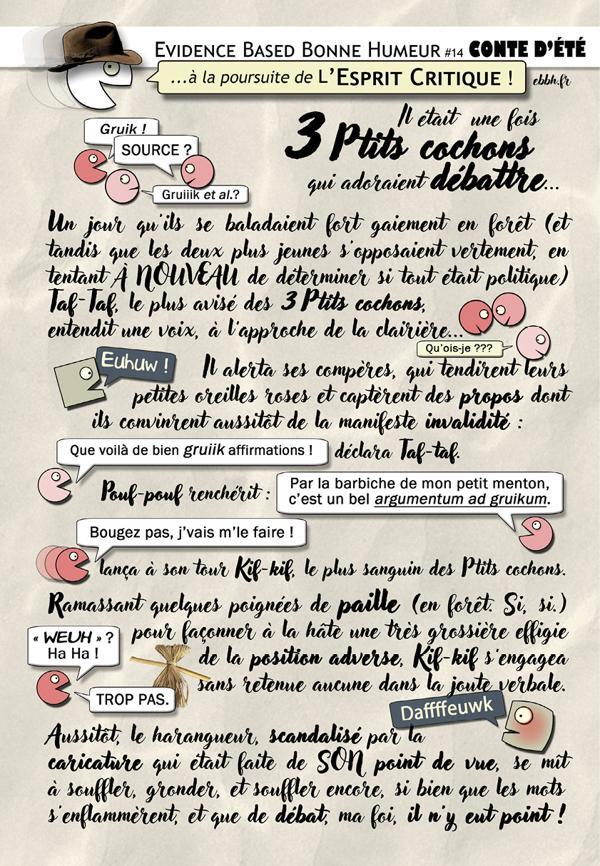 EVIDENCE BASED BONNE HUMEUR #14 CONTE D'ÉTÉ
...à la poursuite de L'ESPRIT CRITIQUE !
ebbh.fr
Gruik !
SOURCE ?
Gruiiik et al.?
Il était une fois
3 Ptits cochons
qui adoraient débattre...
Un jour qu'ils se baladaient fort gaiement en forêt (et
tandis que les deux plus jeunes s'opposaient vertement, en
tentant À NOUVEAU de déterminer si tout était politique)
Taf-Taf, le plus avisé des 3 Ptits cochons,
entendit une voix, à l'approche de la clairière...
Qu'ois-je ???
Euhuw !
Il alerta ses compères, qui tendirent leurs
petites oreilles roses et captèrent des propos dont
ils convinrent aussitôt de la manifeste invalidité :
Que voilà de bien gruiik affirmations !
déclara Taf-taf.
Pouf-pouf renchérit :
Par la barbiche de mon petit menton,
c'est un bel argumentum ad gruikum.
Bougez pas, j'vais m'le faire !
lança à son tour Kif-kif, le plus sanguin des Ptits cochons.
Ramassant quelques poignées de paille (en forêt. Si, si.)
pour façonner à la hâte une très grossière effigie
de la position adverse, Kif-kif s'engagea
sans retenue aucune dans la joute verbale.
« WEUH » ?
Ha Ha !
TROP PAS.
Daffffeuwk
Aussitôt, le harangueur, scandalisé par la
caricature qui était faite de SON point de vue, se mît
à souffler, gronder, et souffler encore, si bien que les mots
s'enflammèrent, et que de débat, ma foi, il n'y eut point !